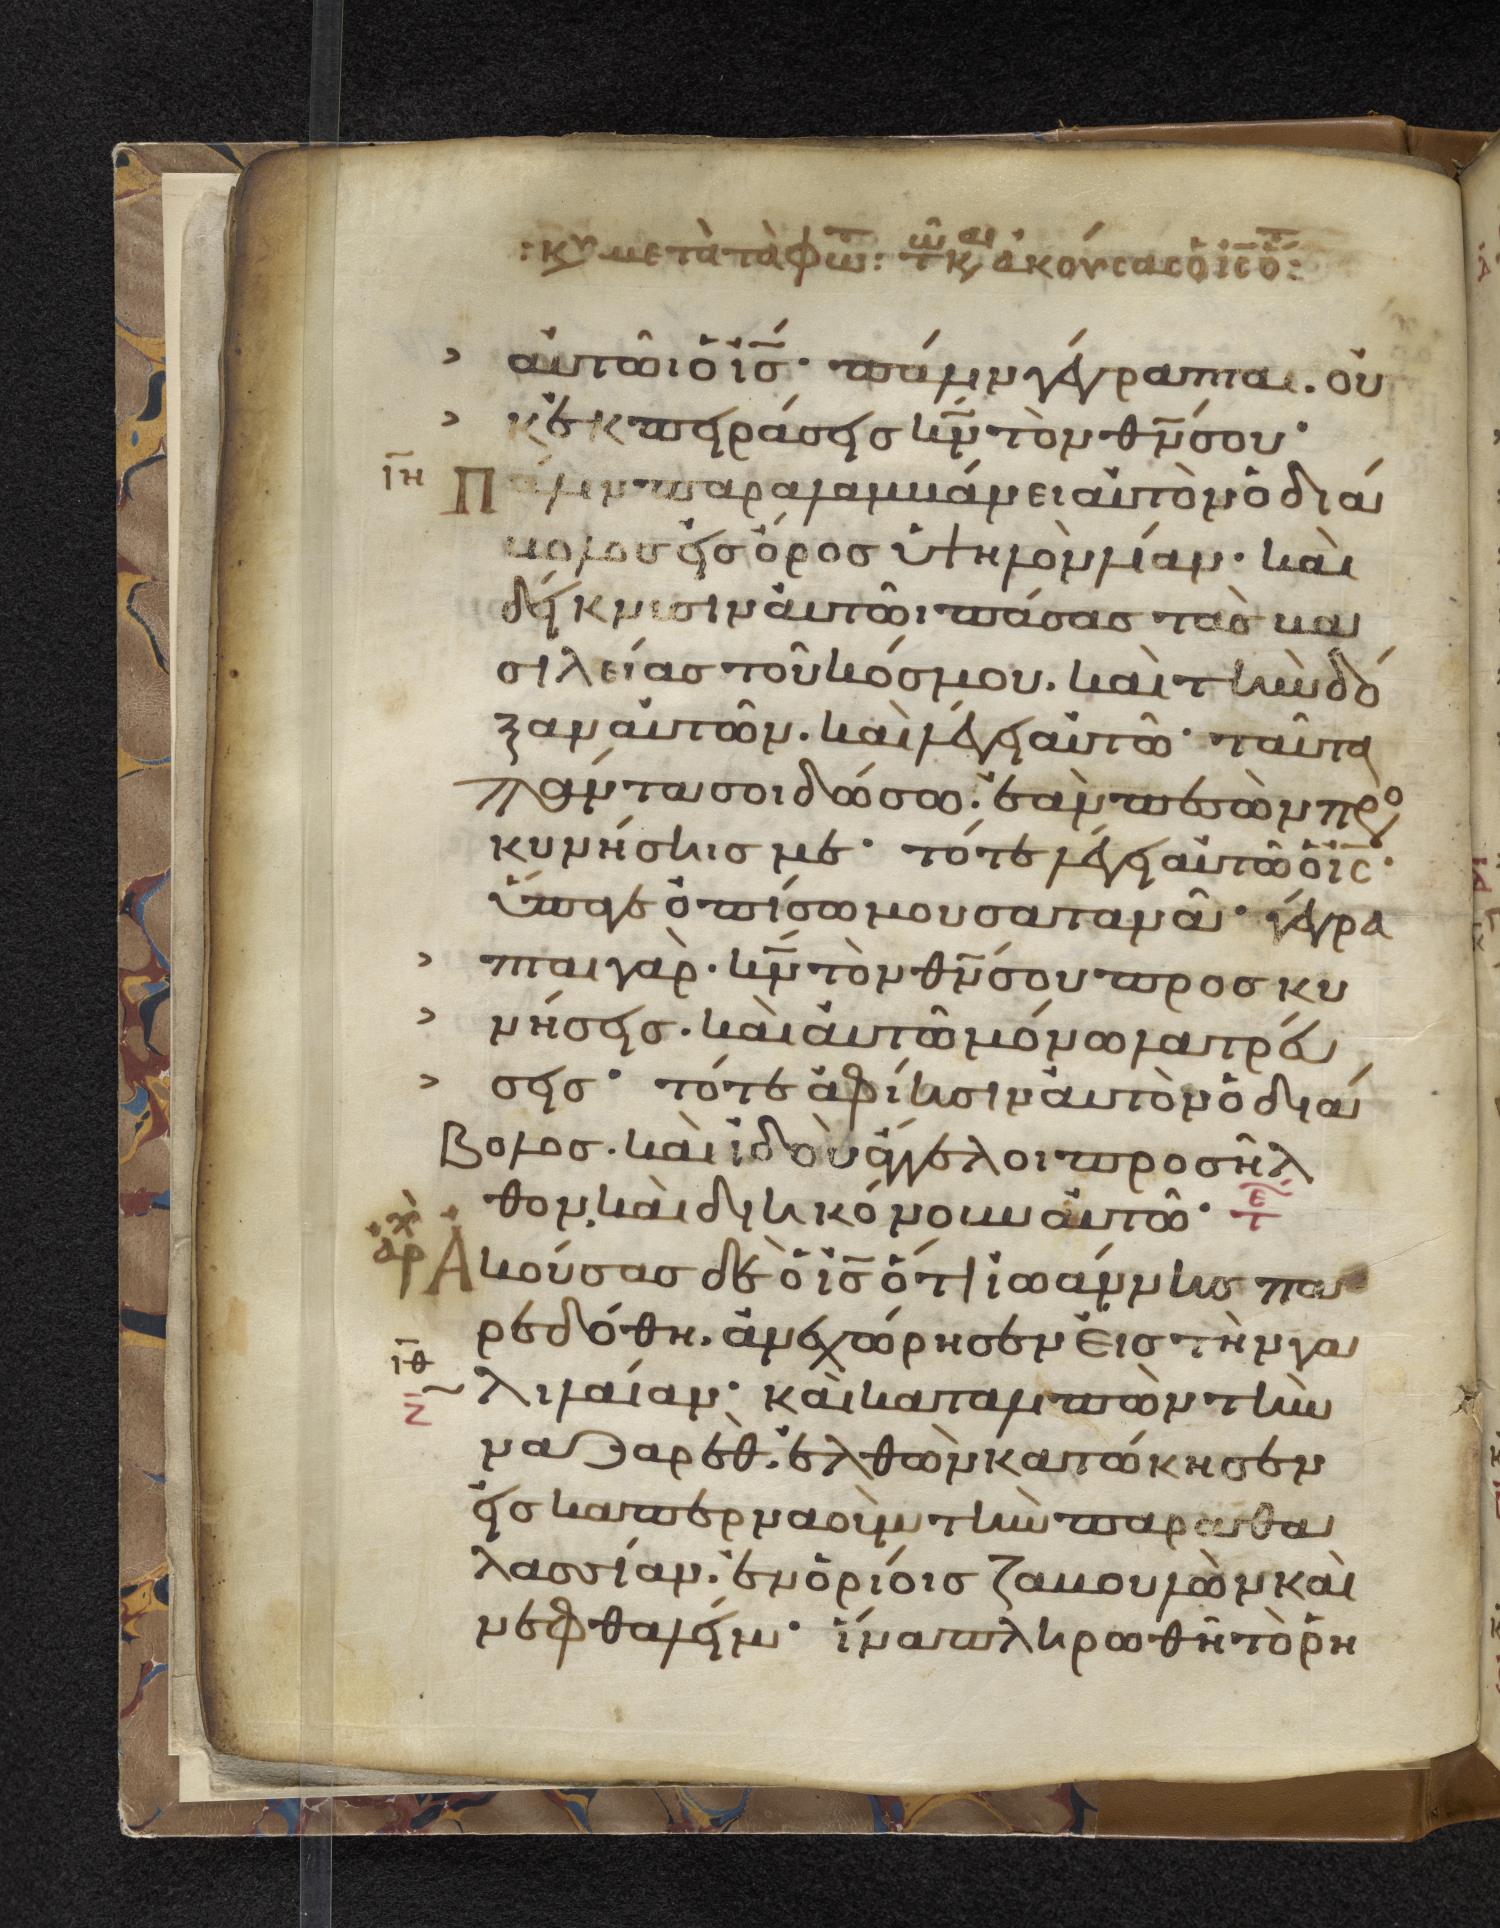 : κυ μετὰ τὰ φω̅: τῶ και ἀκούσας ὁ ι̅ς ὅτ:
αὐτῶι ὁ ι̅σ· πάλιν γέγραπται. οὐ
κ ἐκπειράσεισ κ̅ν τὸν θ̅ν σου·
ι̅η Πάλιν παραλαμβάνει αὐτὸν ὁ διά
βολοσ εἰσ ὄροσ ὑψηλὸν λίαν· καὶ
δείκνυσιν αὐτῶι πάσασ τὰσ βα
σιλείασ τοῦ κόσμου. καὶ τὴν δό
ξαν αὐτῶν. καὶ λέγει αὐτῶ· ταῦτα
πάντα σοι δώσω. ἐὰν πεσὼν προ
κυνήσησ με· τότε λέγει αὐτῶ ὁ ι̅ς·
ὕπαγε ὀπίσω μου σατανᾶ· γέγρα
πται γὰρ. κ̅ν τὸν θ̅ν σου προσκυ
νήσεισ. καὶ αὐτῶ μόνω λατρεύ
σεισ· τότε ἀφίησιν αὐτὸν ὁ διά
βολοσ. καὶ ἰδοὺ ἄγγελοι προσῆλ
θον, καὶ διηκόνουν αὐτῶ· τε
ἀρχ Ἀκούσασ δὲ ὁ ι̅σ ὅτι ἰωάννησ πα
ρεδόθη. ἀνεχώρησεν εἰσ τὴν γα
ι̅θ
ζ̅ λιλαίαν· καὶ καταλιπὼν τὴν
ναζαρὲθ. ἐλθὼν κατώκησεν
εἰσ καπερναοὺμ τὴν παραθα
λασσίαν. ἐν ὁρίοισ ζαβουλὼν καὶ
νεφθαλείμ· ἵνα πληρωθῆ τὸ ῥη